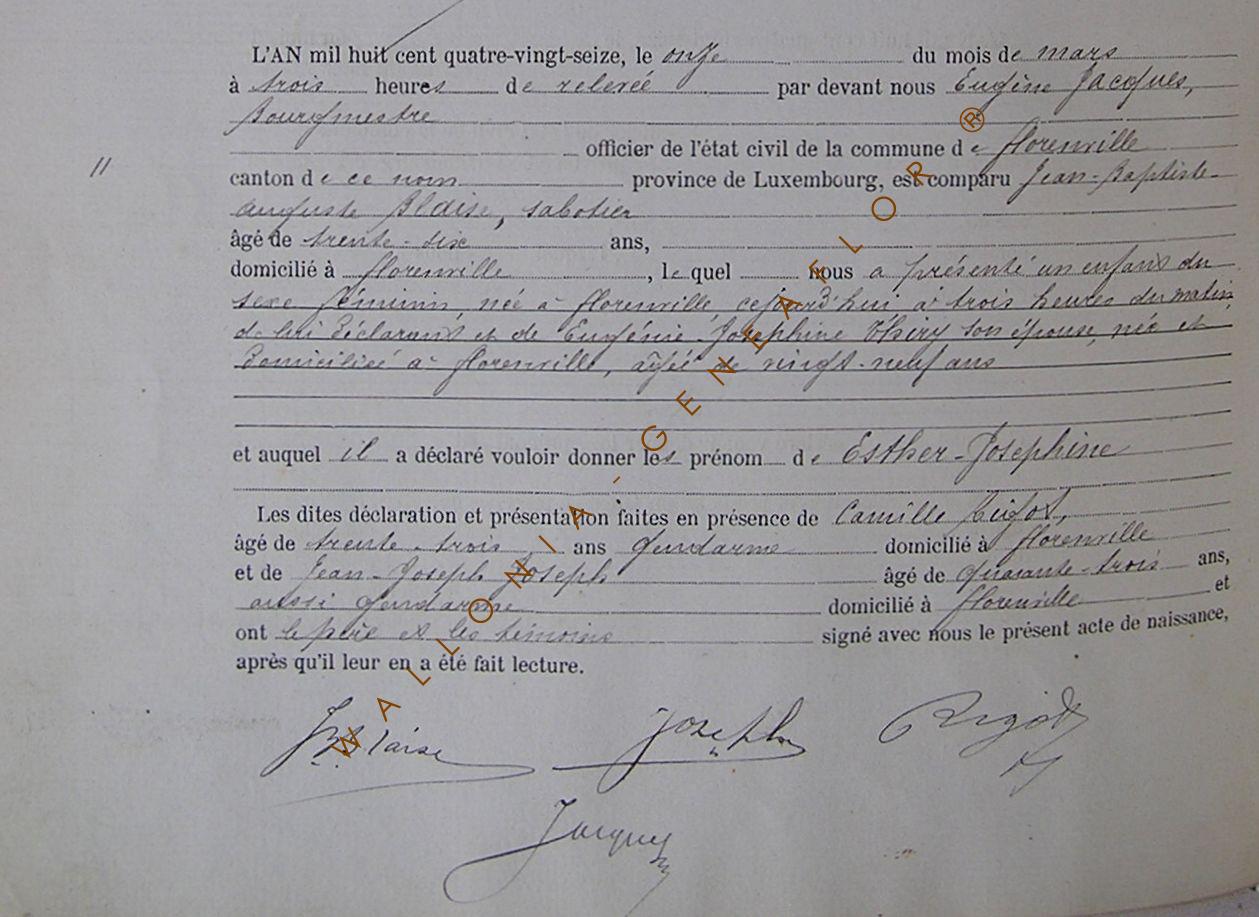 L'AN mil huit cent quatre-vingt-seize, le onze du mois de mars
à trois heures de relevée par devant nous Eugène Jacques,
Bourgmestre
officier de l'état civil de la commune de florenville
11
canton de ce nom province de Luxembourg, est comparu Jean-Baptiste-
Auguste Blaise, sabotier
âgé de trente-six ans,
domicilié à florenville, le quel nous a présenté un enfant du
sexe féminin, née à florenville, cejourd'hui, à trois heures du matin
de lui déclarant et de Eugénie-Josephine Thiry son épouse, née et
domiciliée à florenville, âgée de vingt-neuf ans
et auquel il a déclaré vouloir donner les prénom de Esther-Josephine
Les dites déclaration et présentation faites en présence de Camille Rigot,
âgé de trente-trois ans gendarme domicilié à florenville
et de Jean-Joseph Joseph âgé de quarante-trois ans,
aussi gendarme domicilié à florenville et
ont le père et les témoins signé avec nous le présent acte de naissance,
après qu'il leur en a été fait lecture.
JBBlaise Joseph Rigot
Jacques
WALLONIA-GENEAFLOR®